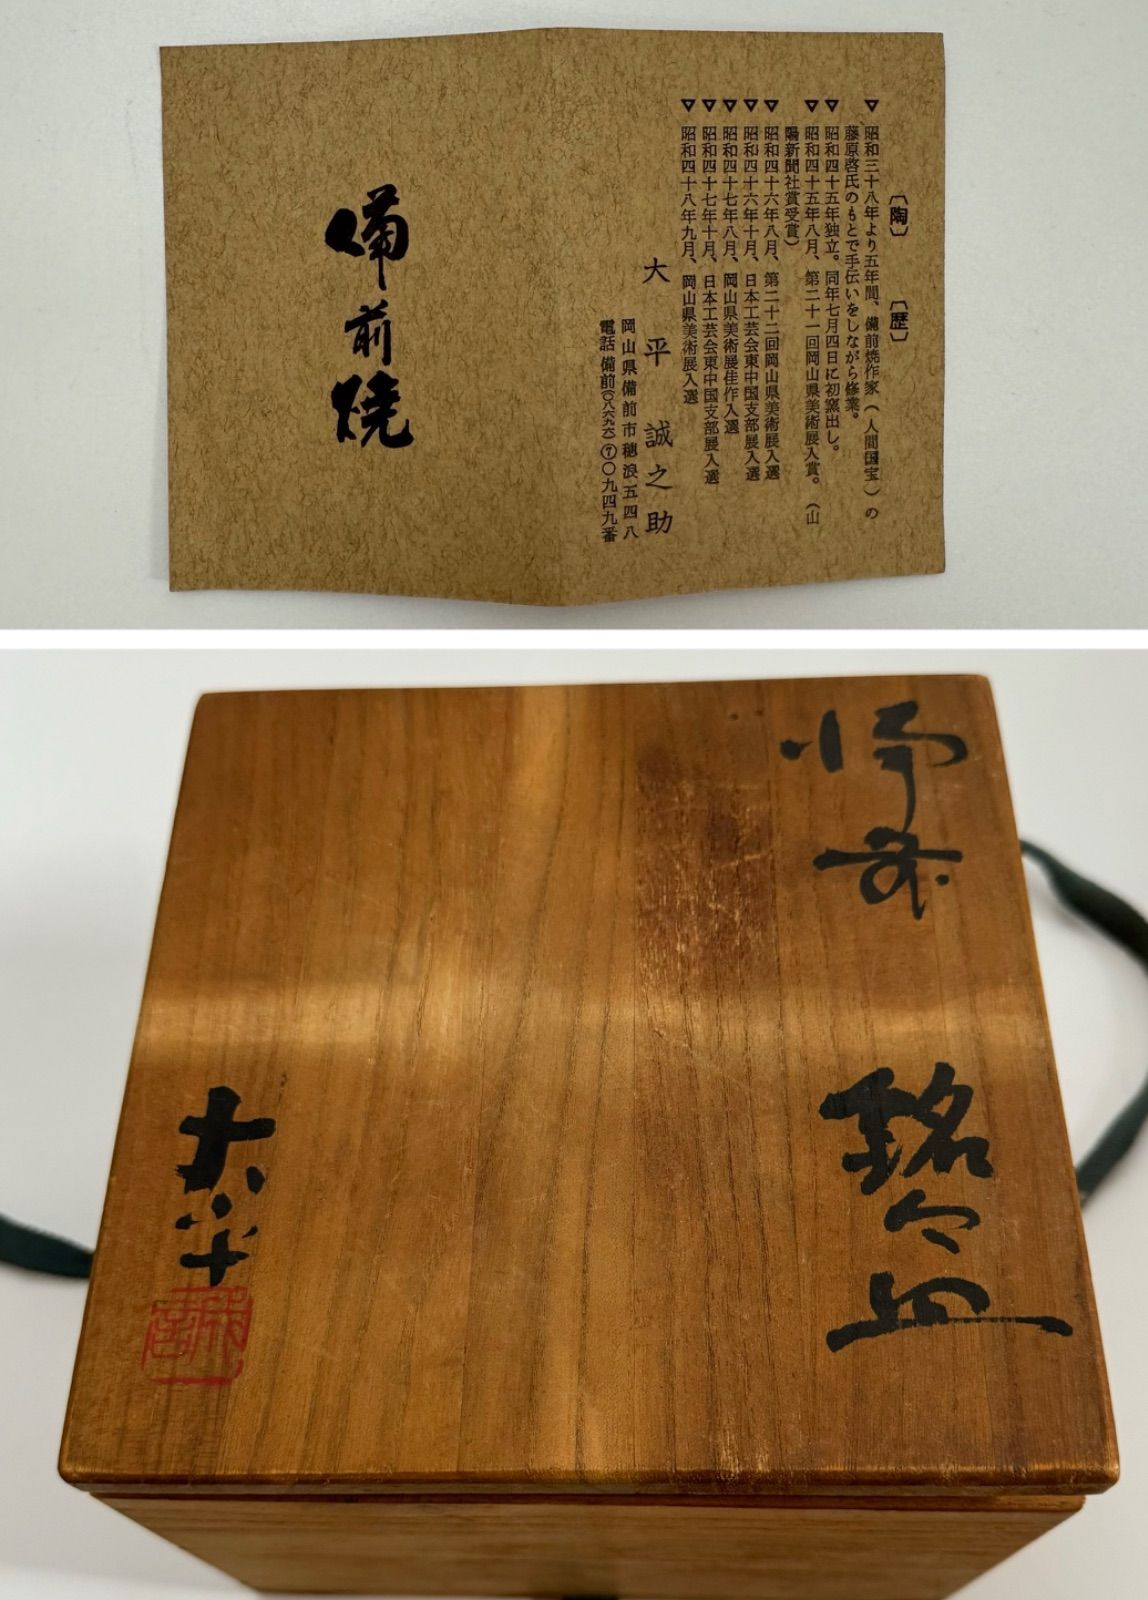 〔陶 歴〕
▽昭和三十八年より五年間、備前焼作家（人間国宝）の
藤原啓氏のもとで手伝いをしながら修業。
▽昭和四十五年独立。同年七月四日に初窯出し。
▽昭和四十五年八月、第二十一回岡山県美術展入賞。（山
陽新聞社賞受賞）
▽昭和四十六年八月、第二十二回岡山県美術展入選
▽昭和四十六年十月、日本工芸会東中国支部展入選
▽昭和四十七年八月、岡山県美術展佳作入選
▽昭和四十七年十月、日本工芸会東中国支部展入選
▽昭和四十八年九月、岡山県美術展入選
大平 誠之助
岡山県備前市穂浪五四八
電話 備前(〇八六九六)⑦〇九四九番
備前焼
備前
銘々皿
大平